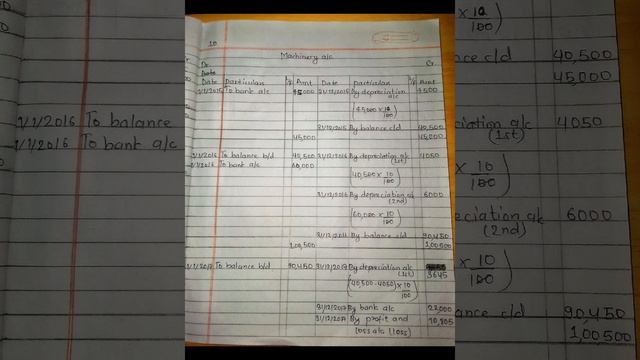 10
Machinery a/c
Dr. Cr.
Date
Date Particulars L/F Amt Date Particulars L/F Amt
1/1/2015 To bank a/c 45000 31/12/2015 By depreciation a/c 4500
(45,000 × 10/100)
31/12/2015 By balance c/d 40,500
45,000 45,000
1/1/2016 To balance b/d 40,500 31/12/2016 By depreciation a/c (1st) 4050
1/1/2016 To bank a/c 60,000
(40,500 × 10/100)
31/12/2016 By depreciation a/c (2nd) 6000
(60,000 × 10/100)
By balance c/d 90,450
1,00,500 1,00,500
1/1/2017 To balance b/d 90,450 31/12/2017 By depreciation a/c (1st) 3645
(40,500 - 4050) × 10/100
31/12/2017 By bank a/c
31/12/2017 By profit and
loss a/c (loss)
1/1/2016 To balance
1/1/2016 To bank a/c
× 10/100)
nce c/d 40,500
45,000
ciation a/c 4050
(1st)
× 10/100)
eciation a/c 6000
(2nd)
× 10/100)
ance c/d 90,450
1,00,500